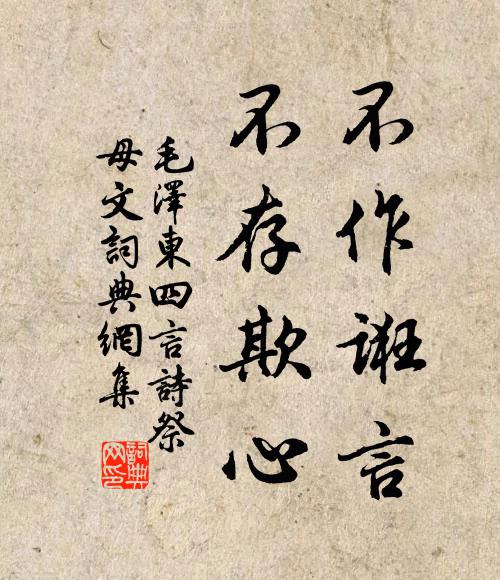 不作誑言
不存欺心
毛澤東四言詩祭
母文詞典網集
詞典
网印